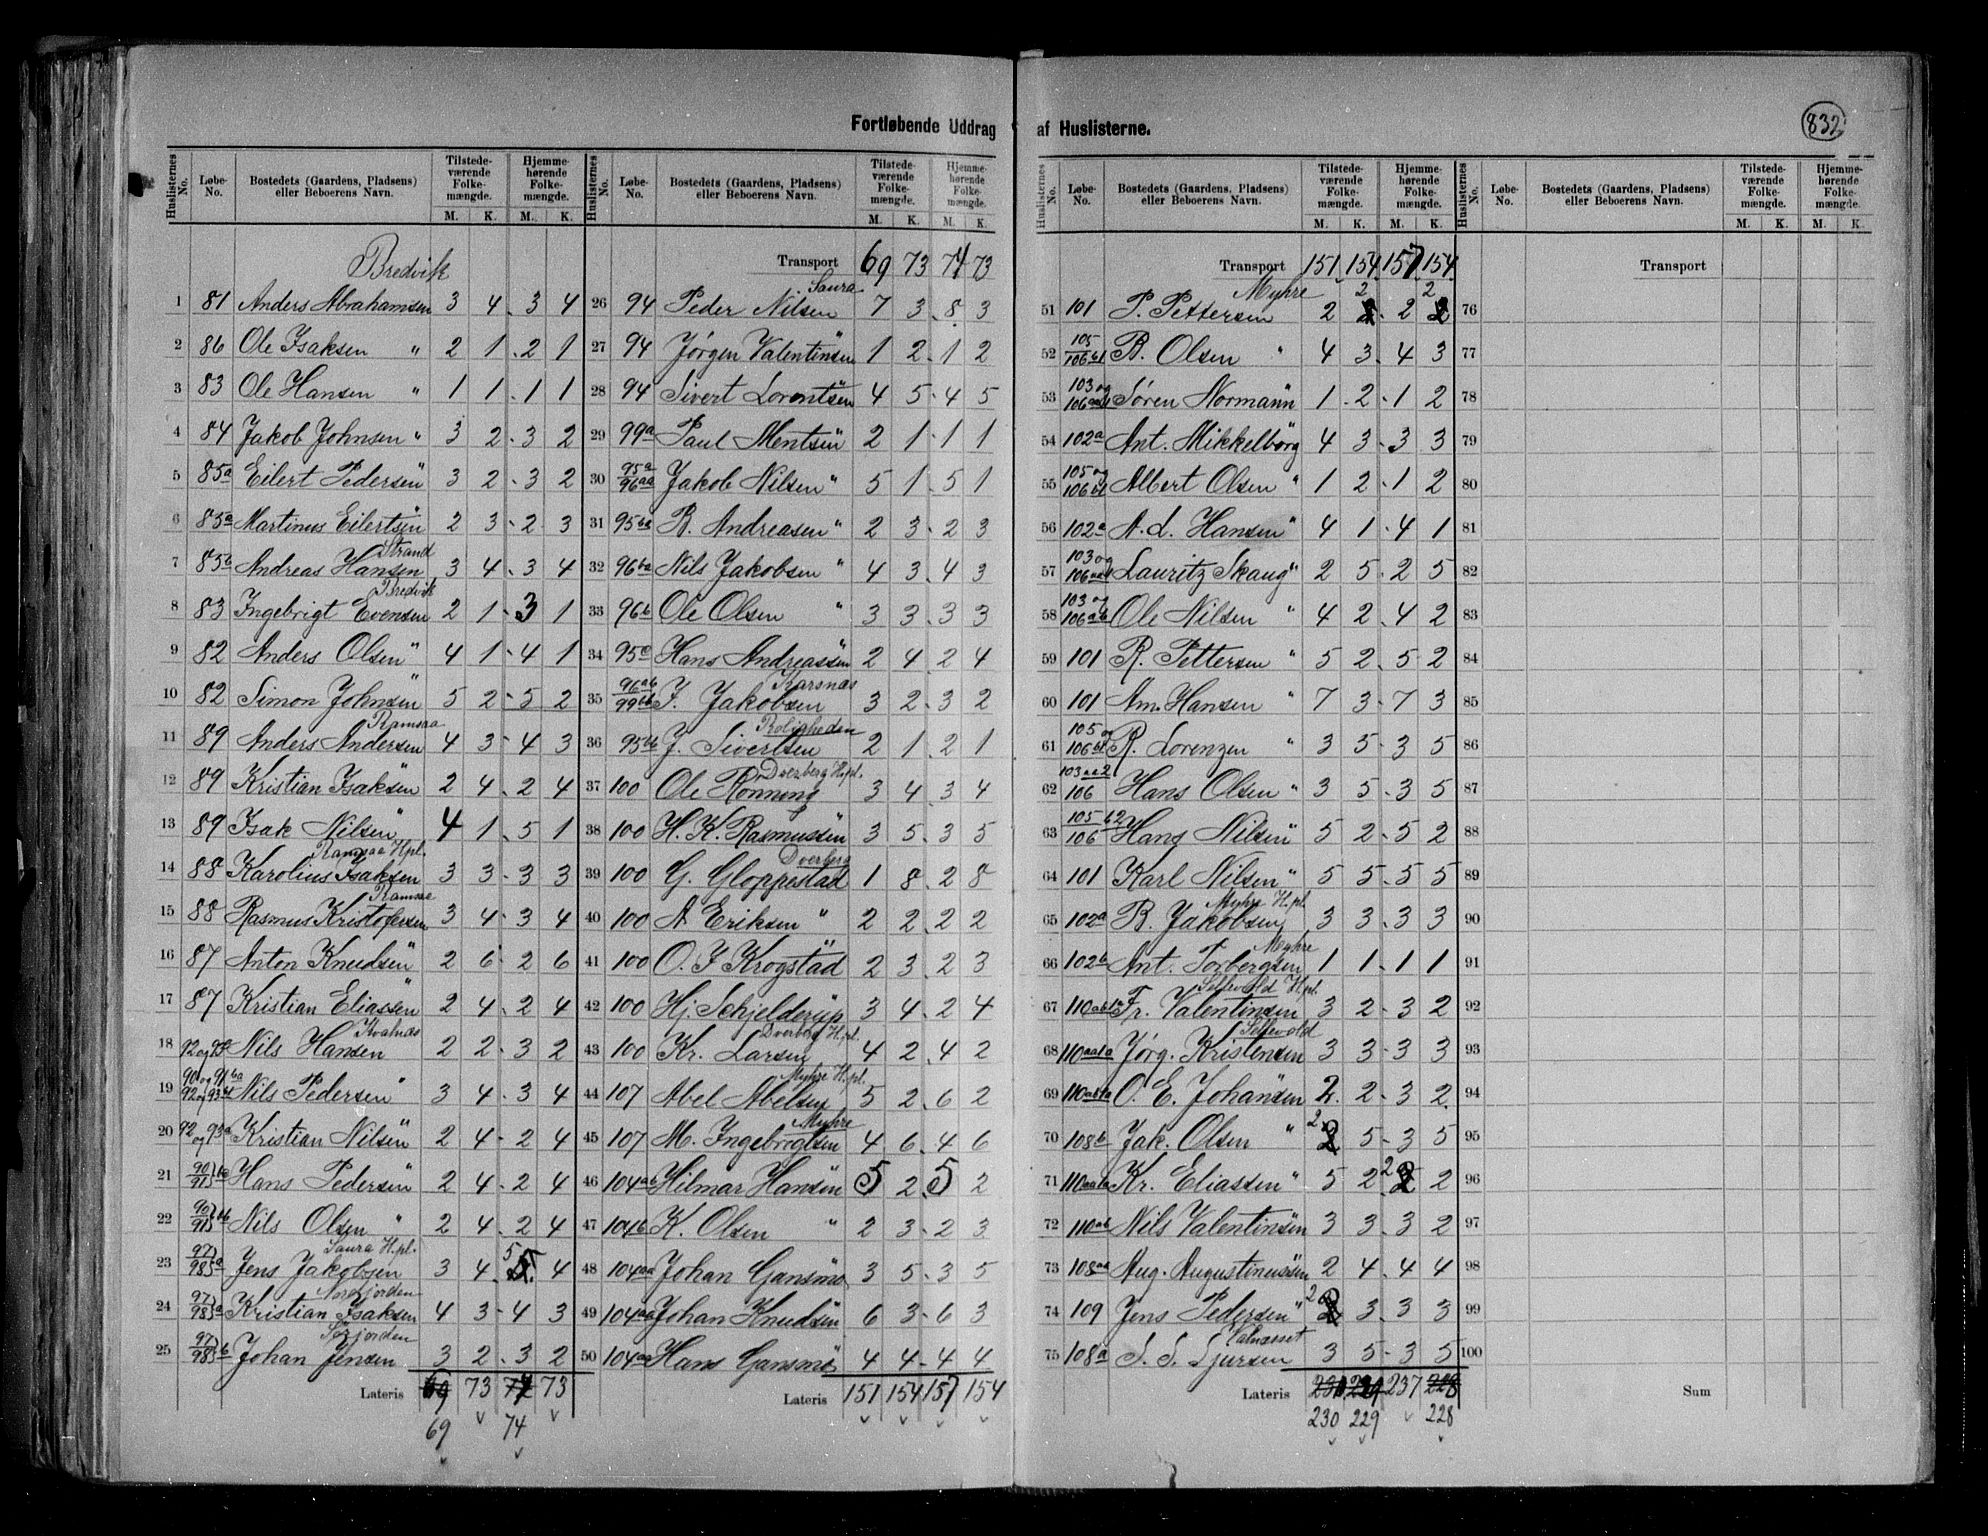 832
Fortløbende Uddrag af Huslisterne.
Huslisternes No. Løbe-No. Bostedets (Gaardens, Pladsens) eller Beboerens Navn. Tilstedeværende Folkemængde. M. K. Hjemmehørende Folkemængde. M. K.
Bredvik
1 81 Anders Abrahamsen 3 4 3 4
2 86 Ole Isaksen " 2 1 2 1
3 83 Ole Hansen " 1 1 1 1
4 84 Jakob Johnsen " 3 2 3 2
5 85a Eilert Pedersen " 3 2 3 2
6 85a Martinus Eilertsen " 2 3 2 3
Strand
7 85b Andreas Hansen 3 4 3 4
Bredvik
8 83 Ingebrigt Evensen 2 1 3 1
9 82 Anders Olsen " 4 1 4 1
10 82 Simon Johnsen " 5 2 5 2
Ramsaa
11 89 Anders Andersen 4 3 4 3
12 89 Kristian Isaksen " 2 4 2 4
13 89 Isak Nilsen " 4 1 5 1
Ramsaa H.pl.
14 88 Karolius Isaksen 3 3 3 3
Ramsaa
15 88 Rasmus Kristofersen 3 4 3 4
16 87 Anton Knudsen " 2 6 2 6
17 87 Kristian Eliassen " 2 4 2 4
Kvalnæs
18 92 og 93a Nils Hansen 2 2 3 2
19 90 og 91ba 92 og 93 Nils Pedersen " 3 4 3 4
20 92 og 93a Kristian Nilsen " 2 4 2 4
21 90 91 Hans Pedersen " 2 4 2 4
22 90 91 Nils Olsen " 2 4 2 4
Saura H.pl.
23 97 98 a Jens Jakobsen 3 4 5 4
Nordjorden
24 97 98 a Kristian Isaksen 4 3 4 3
Sørjorden
25 97 98 b Johan Jensen 3 2 3 2
Lateris 69 73 74 73
69 74
Transport 69 73 74 73
Saura
26 94 Peder Nilsen 7 3 8 3
27 94 Jørgen Valentinsen " 1 2 1 2
28 94 Sivert Lorentsen " 4 5 4 5
29 99a Paul Mentsen " 2 1 1 1
30 95a 96aa Jakob Nilsen " 5 1 5 1
31 95 B. Andreasen " 2 3 2 3
32 96ba Nils Jakobsen " 4 3 4 3
33 96b Ole Olsen " 3 3 3 3
34 95 Hans Andreassen " 2 4 2 4
Karsnæs
35 96ab 99 J. Jakobsen 3 2 3 2
Roligheden
36 95 J. Sivertsen 2 1 2 1
Dverberg H.pl.
37 100 Ole Rønning 3 4 3 4
38 100 H. K. Rasmussen " 3 5 3 5
Dverberg
39 100 G. Gloppestad 1 8 2 8
40 100 A. Eriksen " 2 2 2 2
41 100 O. J Krogstad " 2 3 2 3
42 100 Hj. Schjelderup " 3 4 2 4
Dverberg H.pl.
43 100 Kr. Larsen 4 2 4 2
Myhre H.pl.
44 107 Abel Abelsen 5 2 6 2
Myhre
45 107 M. Ingebrigtsen 4 6 4 6
46 104ab Hilmar Hansen " 5 2 5 2
47 104b K. Olsen " 2 3 2 3
48 104aa Johan Gansmo 3 5 3 5
49 104aa Johan Knudsen " 6 3 6 3
50 104aa Hans Gansmo " 4 4 4 4
Lateris 151 154 157 154
Transport 151 154 157 154
Myhre
51 101 P. Pettersen 2 2 2 2
52 105 106 B. Olsen " 4 3 4 3
53 103 og 106 Søren Normann " 1 2 1 2
54 102a Ant. Mikkelborg " 4 3 3 3
55 105 og 106 Albert Olsen " 1 2 1 2
56 102a A. L. Hansen " 4 1 4 1
57 103 og 106 Lauritz Skaug " 2 5 2 5
58 103 og 106 Ole Nilsen " 4 2 4 2
59 101 R. Pettersen " 5 2 5 2
60 101 Am. Hansen " 7 3 7 3
61 105 og 106 R. Lorenzen " 3 5 3 5
62 103aa2 106 Hans Olsen " 3 5 3 5
63 105 b2 106 Hans Nilsen " 5 2 5 2
64 101 Karl Nilsen " 5 5 5 5
Myhre H.pl.
65 102a B. Jakobsen 3 3 3 3
Myhre
66 102b Ant. Torbergsen 1 1 1 1
Settevold H.pl.
67 110 Fr. Valentinsen 3 2 3 2
Settevold
68 110aa1a Jørg. Kristensen 3 3 3 3
69 110 O. E. Johansen " 2 2 3 2
70 108b Jak. Olsen " 2 5 3 5
71 110 Kr. Eliassen " 5 2 2 2
72 110ab Nils Valentinsen " 3 3 3 2
73 108aa Aug. Augustinussen " 2 4 4 4
74 109 Jens Pedersen " 2 3 3 3
Valnæsset
75 108a S. S. Sjursen 3 5 3 5
Lateris 230 229 237 228
230 229 228
Transport
76
77
78
79
80
81
82
83
84
85
86
87
88
89
90
91
92
93
94
95
96
97
98
99
100
Sum